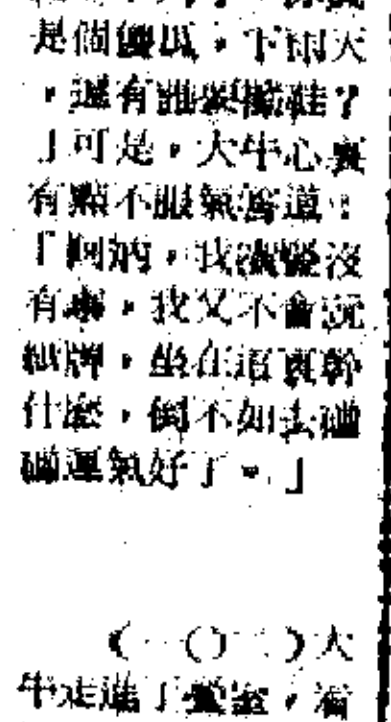 是個傻瓜，下雨天
，還有誰要擦鞋？
」可是，大牛心裏
有點不服氣答道：
「阿炳，我橫豎沒
有事，我又不會玩
紙牌，坐在這裏幹
什麼，倒不如去碰
碰運氣好了。」
（一〇二）大
牛走進了堂室，